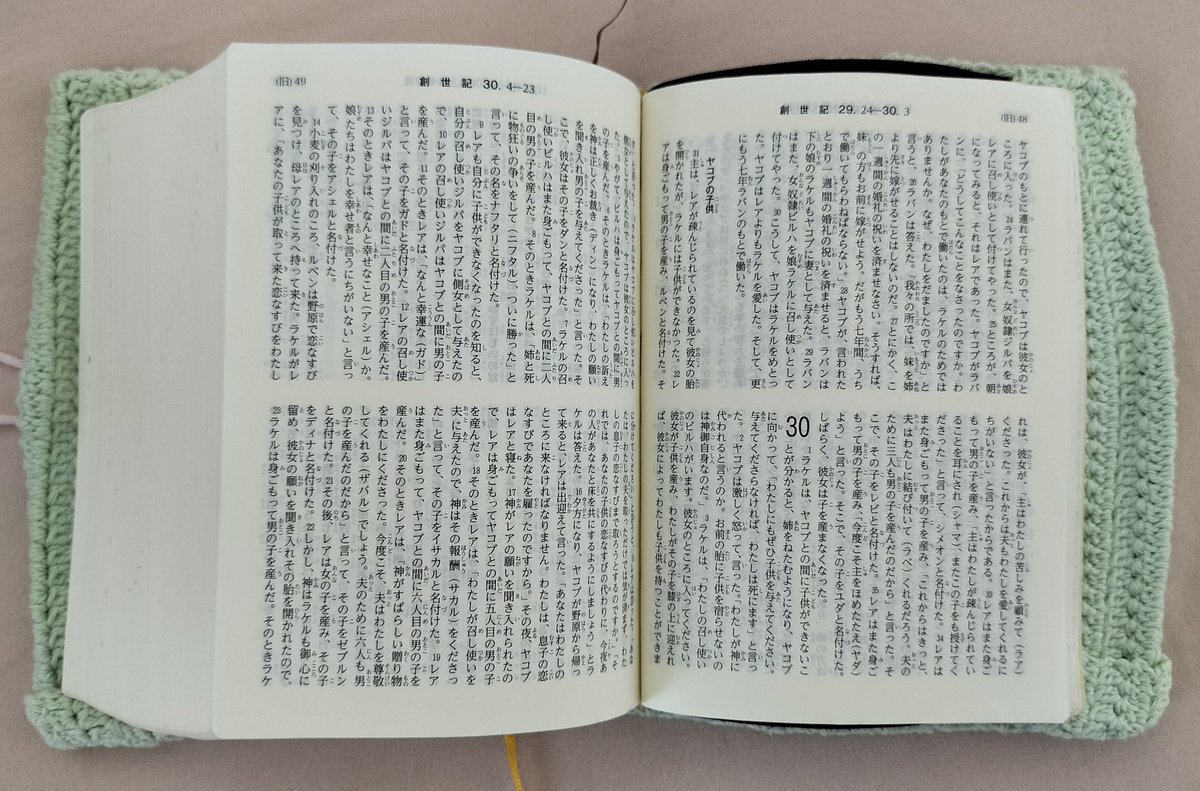 (旧)48
創世記 29.24—30.3
ヤコブのもとに連れて行ったので、ヤコブは彼女のと
ころに入った。24ラバンはまた、女奴隷ジルパを娘
レアに召し使いとして付けてやった。25ところが、朝
になってみると、それはレアであった。ヤコブがラバ
ンに、「どうしてこんなことをなさったのですか。わ
たしがあなたのもとで働いたのは、ラケルのためでは
ありませんか。なぜ、わたしをだましたのですか」と
言うと、26ラバンは答えた。「我々の所では、妹を姉
より先に嫁がせることはしないのだ。27とにかく、こ
の一週間の婚礼の祝いを済ませなさい。そうすれば、
妹の方もお前に嫁がせよう。だがもう七年間、うち
で働いてもらわねばならない。」28ヤコブが、言われた
とおり一週間の婚礼の祝いを済ませると、ラバンは
下の娘のラケルもヤコブに妻として与えた。29ラバン
はまた、女奴隷ビルハを娘ラケルに召し使いとして
付けてやった。30こうして、ヤコブはラケルをめとっ
た。ヤコブはレアよりもラケルを愛した。そして、更
にもう七年ラバンのもとで働いた。
ヤコブの子供
31主は、レアが疎んじられているのを見て彼女の胎
を開かれたが、ラケルには子供ができなかった。32レ
アは身ごもって男の子を産み、ルベンと名付けた。そ
れは、彼女が、「主はわたしの苦しみを顧みて(ラア)
くださった。これからは夫もわたしを愛してくれるに
ちがいない」と言ったからである。33レアはまた身ご
もって男の子を産み、「主はわたしが疎んじられてい
ることを耳にされ(シャマ)、またこの子をも授けてく
ださった」と言って、シメオンと名付けた。34レアは
また身ごもって男の子を産み、「これからはきっと、
夫はわたしに結び付いて(ラベ)くれるだろう。夫の
ために三人も男の子を産んだのだから」と言った。そ
こで、その子をレビと名付けた。35レアはまた身ご
もって男の子を産み、「今度こそ主をほめたたえ(ヤダ)
よう」と言った。そこで、その子をユダと名付けた。
しばらく、彼女は子を産まなくなった。
30 1ラケルは、ヤコブとの間に子供ができないこ
とが分かると、姉をねたむようになり、ヤコブ
に向かって、「わたしにもぜひ子供を与えてください。
与えてくださらなければ、わたしは死にます」と言っ
た。2ヤコブは激しく怒って、言った。「わたしが神に
代われると言うのか。お前の胎に子供を宿らせないの
は神御自身なのだ。」3ラケルは、「わたしの召し使い
のビルハがいます。彼女のところに入ってください。
彼女が子供を産み、わたしがその子を膝の上に迎えれ
ば、彼女によってわたしも子供を持つことができま
(旧)49
創世記 30.4—23
た。5やがて、ビルハは身ごもってヤコブとの間に男
の子を産んだ。6そのときラケルは、「わたしの訴え
を神は正しくお裁き(ディン)になり、わたしの願い
を聞き入れ男の子を与えてくださった」と言った。そ
こで、彼女はその子をダンと名付けた。7ラケルの召
し使いビルハはまた身ごもって、ヤコブとの間に二人
目の男の子を産んだ。8そのときラケルは、「姉と死
に物狂いの争いをして(ニフタル)、ついに勝った」と
言って、その名をナフタリと名付けた。
9レアも自分に子供ができなくなったのを知ると、
自分の召し使いジルパをヤコブに側女として与えたの
で、10レアの召し使いジルパはヤコブとの間に男の子
を産んだ。11そのときレアは、「なんと幸運な(ガド)」
と言って、その子をガドと名付けた。12レアの召し使
いジルパはヤコブとの間に二人目の男の子を産んだ。
13そのときレアは、「なんと幸せなこと(アシェル)か。
娘たちはわたしを幸せ者と言うにちがいない」と言っ
て、その子をアシェルと名付けた。
14小麦の刈り入れのころ、ルベンは野原で恋なすび
を見つけ、母レアのところへ持って来た。ラケルがレ
アに、「あなたの子供が取って来た恋なすびをわたし
の人があなたと床を共にするようにしましょう」とラ
ケルは答えた。16夕方になり、ヤコブが野原から帰っ
て来ると、レアは出迎えて言った。「あなたはわたしの
ところに来なければなりません。わたしは、息子の恋
なすびであなたを雇ったのですから。」その夜、ヤコブ
はレアと寝た。17神がレアの願いを聞き入れられたの
で、レアは身ごもってヤコブとの間に五人目の男の子
を産んだ。18そのときレアは、「わたしが召し使いを
夫に与えたので、神はその報酬(サカル)をくださっ
た」と言って、その子をイサカルと名付けた。19レア
はまた身ごもって、ヤコブとの間に六人目の男の子を
産んだ。20そのときレアは、「神がすばらしい贈り物
をわたしにくださった。今度こそ、夫はわたしを尊敬
してくれる(ザバル)でしょう。夫のために六人も男
の子を産んだのだから」と言って、その子をゼブルン
と名付けた。21その後、レアは女の子を産み、その子
をディナと名付けた。22しかし、神はラケルも御心に
留め、彼女の願いを聞き入れその胎を開かれたので、
23ラケルは身ごもって男の子を産んだ。そのときラケ